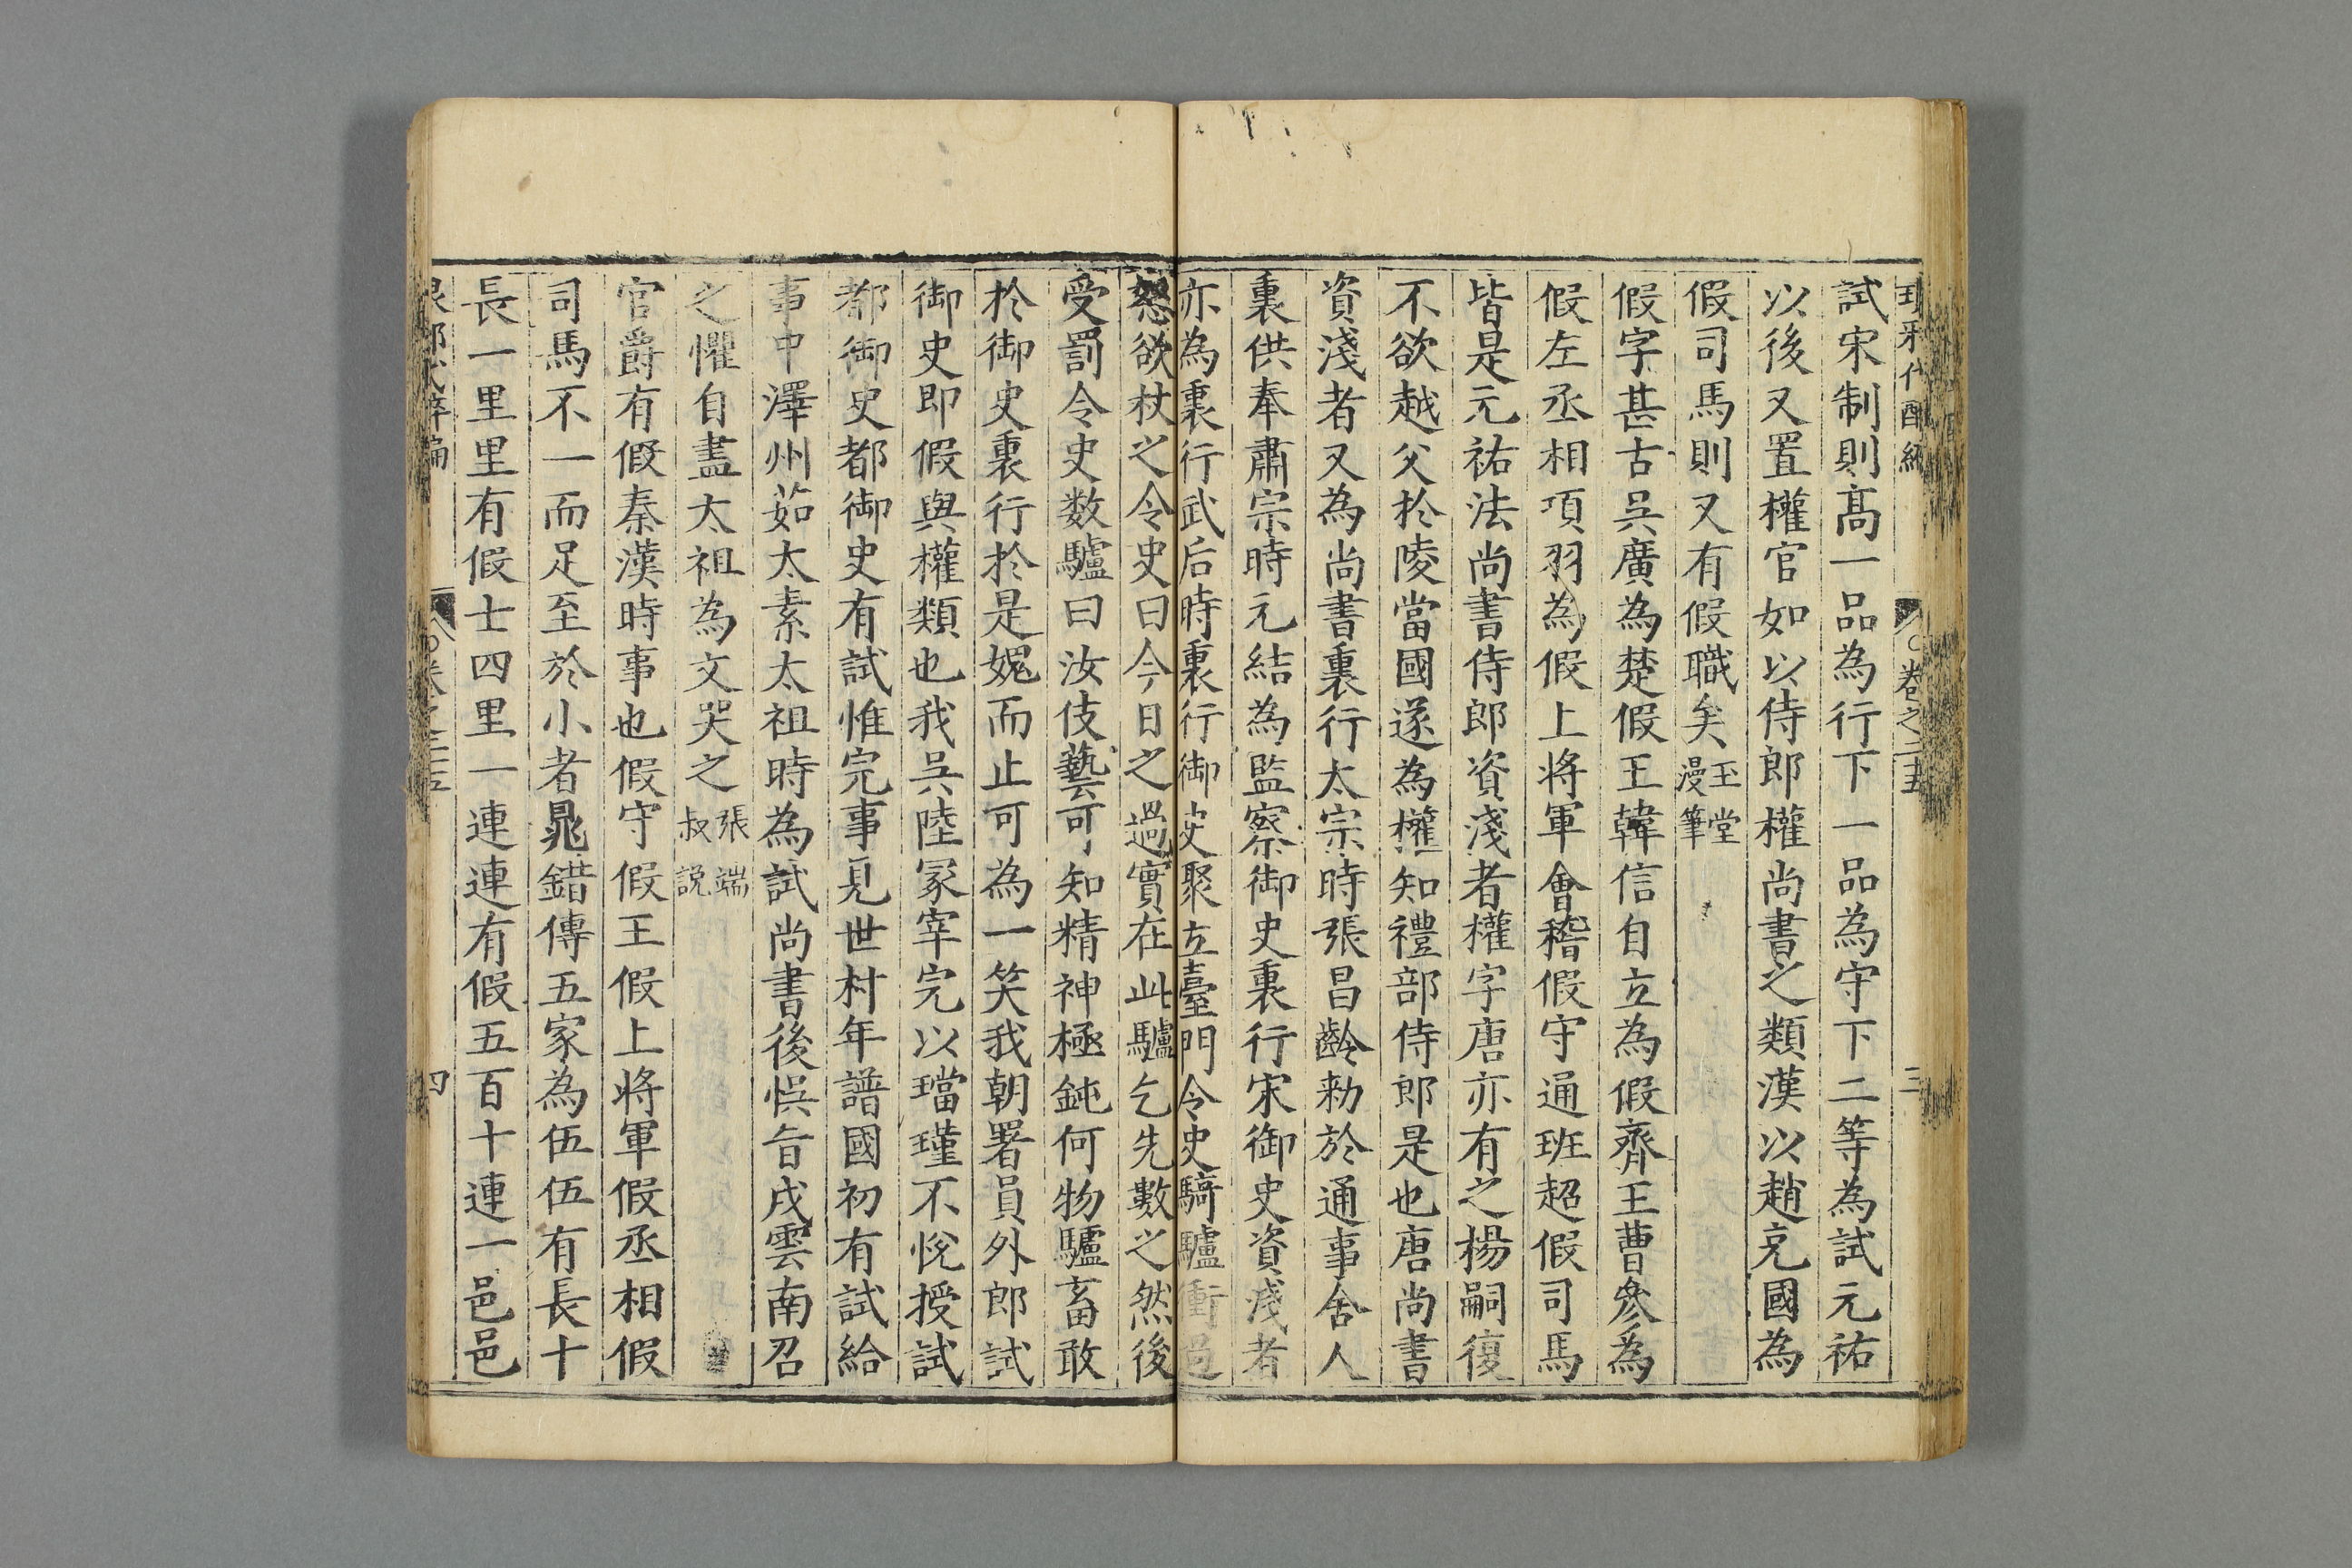 卷之二十五 三
試宋制則高一品為行下一品為守下二等為試元祐
以後又置權官如以侍郎權尚書之類漢以趙充國為
假司馬則又有假職矣玉堂漫筆
假字甚古吳廣為楚假王韓信自立為假齊王曹參為
假左丞相項羽為假上将軍會稽假守通班超假司馬
皆是元祐法尚書侍郎資淺者權字唐亦有之楊嗣復
不欲越父於陵當國遂為權知禮部侍郎是也唐尚書
資淺者又為尚書裏行太宗時張昌齡勑於通事舍人
裏供奉肅宗時元結為監察御史裏行宋御史資淺者
亦為裏行武后時裏行御史聚立臺門令史騎驢衝過
怒欲杖之令史曰今日之過實在此驢乞先數之然後
受罰令史数驢曰汝伎藝可知精神極鈍何物驢畜敢
於御史裏行於是媿而止可為一笑我朝署員外郎試
御史即假與權類也我吳陸冢宰完以璫瑾不悅授試
都御史都御史有試惟完事見世村年譜國初有試給
事中澤州茹太素太祖時為試尚書後悞㫖戍雲南召
之懼自盡太祖為文哭之張端叔說
官爵有假秦漢時事也假守假王假上将軍假丞相假
司馬不一而足至於小者鼂錯傳五家為伍伍有長十
長一里里有假士四里一連連有假五百十連一邑邑
四